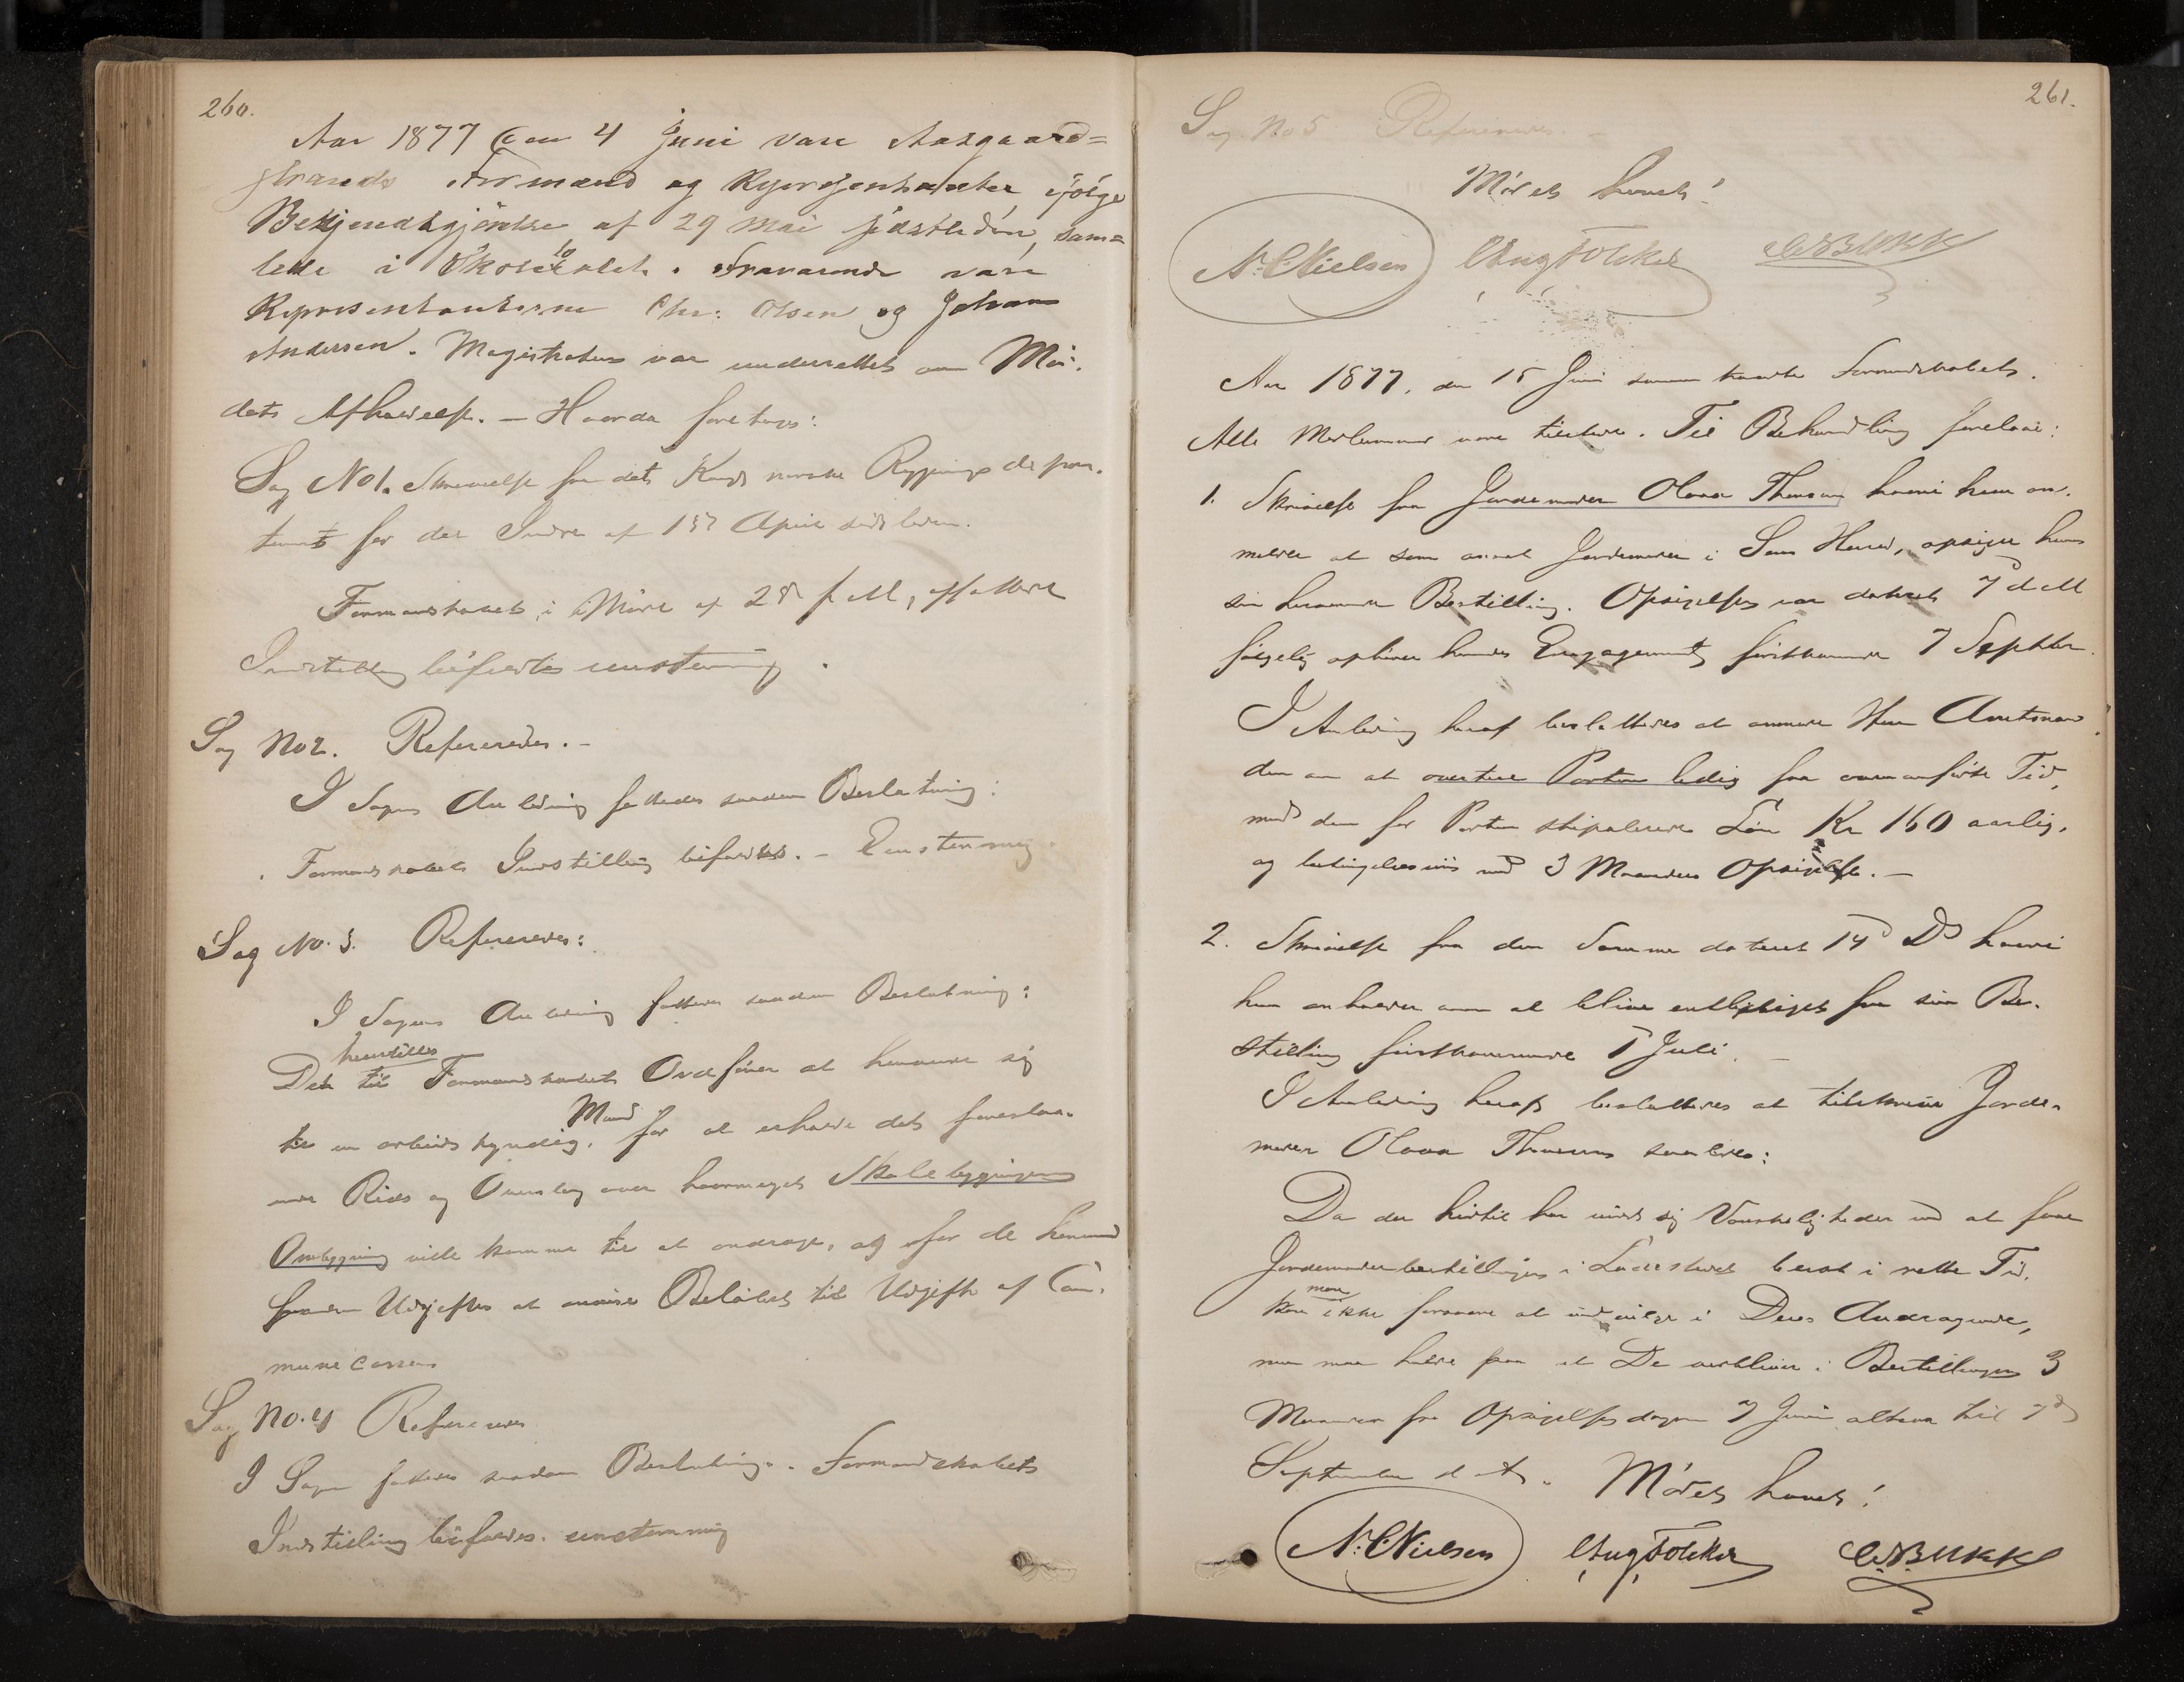 260.
Aar 1877 den 4 Juni vare Aasgaard=
strands Formænd og Repræsentanter, ifølge
Bekjendtgjørelse af 29 Mai sidstleden, sam=
lede i Skolelokalet. Fraværende vare
Repræsentanterne Chr: Olsen og Johan
Andersen. Magistraten var underrettet om Mø-
dets Afholdelse. — Hvorda foretoges:
Sag No 1. Skrivelse fra det Kongl norske Regjerings depar-
tement for det Indre af April sidstleden.
Formandskabet i Møde af 2d f. M, affattede
Indstilling bifaldtes eenstemmig.
Sag No 2. Refereredes. —
I Sagens Anledning fattedes saadan Beslutning:
Formandskabets Indstilling bifaldtes. — Eenstemmig.
Sag No. 3. Refereredes:
I Sagens Anledning fattedes saadan Beslutning:
henstilles
Det til Formandskabets Ordfører at henvende sig
Mand
til en arbeidskyndig, for at erholde det foreslaa-
ede Rids og Overslag over hvormeget Skolebygningens
Ombygning vilde komme til at andrage, og for de
Udgifter at anvise Beløbet til Udgift af Com-
munecassen
Sag No. 4 Refereredes
I Sagen fattedes saadan Beslutning. Formandskabets
Indstilling bifaldes. eenstemmig
261.
Sag No 5 Refereredes. —
Mødet hævet!
N. C. Nielsen Chr Aug Foleker C. N. Bukk
Aar 1877, den 15 Juni sammentraadte Formandskabet.
Alle Medlemmer vare tilstede. Til Behandling forelaae:
1. Skrivelse fra Jordemoder Olava Thoresen hvori hun an-
melder at som ansat Jordemoder i Sems Herred, opsiger hun
sin herværende Bestilling. Opsigelsen var dateret 7 d M
følgelig ophører hendes Engagement førstkommende 7 Septbr.
I Anledning heraf besluttedes at anmode Herr Amtman-
den om at avertere Posten ledig fra ovenanførte Tid,
med den for Posten stipulerede Løn Kr 160 aarlig,
og betingelsesviis med 3 Maaneders Opsigelse. —
2. Skrivelse fra den Samme dateret 14d Ds hvori
hun anholder om at blive entlediget fra sin Be-
stilling førstkommende 1 Juli. —
I Anledning heraf besluttedes at tilskrive Jorde-
moder Olava Thoresen saaledes:
Da der hidtil har viist sig Vanskeligheder ved at faae
Jordemoderbestillingen i Ladestedet besat i rette Tid,
man
kan ikke forsvare at indvilge i Deres Andragende,
men maa holde paa at De verbliver i Bestillingen 3
Maaneder fra Opsigelsesdagen 7 Juni altsaa til 7d
September d. A. Mødet hævet!
N. C. Nielsen Chr Aug Foleker C. N. Bukk